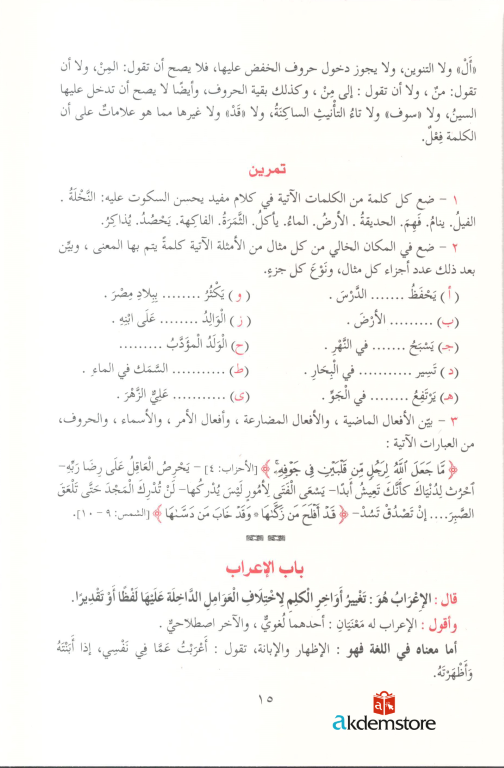 «أَلْ» ولا التنوين، ولا يجوز دخول حروف الخفض عليها، فلا يصح أن تقول: المِنْ، ولا أن
تقول: منٌ ، ولا أن تقول : إلى مِنْ ، وكذلك بقية الحروف، وأيضًا لا يصح أن تدخل عليها
السينُ، ولا «سوف» ولا تاءُ التأنيثِ الساكِنَةُ، ولا «قَدْ» ولا غيرها مما هو علاماتٌ على أن
الكلمة فِعْلٌ.
تمرين
١ - ضع كل كلمة من الكلمات الآتية في كلام مفيد يحسن السكوت عليه: النَّخْلَةُ .
الفيلُ. ينامُ. فَهِمَ. الحديقةُ . الأرضُ. الماءُ. يأكلُ. الثَّمَرَةُ. الفاكهة. يَحْصُدُ. يُذاكِرُ.
٢ - ضع في المكان الخالي من كل مثال من الأمثلة الآتية كلمةً يتم بها المعنى ، وبيِّن
بعد ذلك عدد أجزاء كل مثال، ونَوْعَ كل جزءٍ.
(أ) يَحْفَظُ ....... الدَّرْسَ . (و) يَكْثُرُ ........ بِبِلادِ مِصْرَ .
(ب) ......... الأرْضَ . (ز) الْوَالِدُ ........ عَلَى ابْنِهِ .
(جـ) يَسْبَحُ ....... في النَّهْرِ . (ح) الْوَلَدُ الْمؤَدَّبُ .........
(د) تَسِير ........... في الْبِحَارِ . (ط) ........... السَّمَك في الماءِ .
(هـ) يَرْتَفِعُ ........ في الْجَوِّ . (ى) ........... عَلِيٌّ الزَّهْرَ .
٣ - بيِّن الأفعال الماضية ، والأفعال المضارعة ، وأفعال الأمر ، والأسماء ، والحروف،
من العبارات الآتية :
﴿مَّا جَعَلَ ٱللَّهُ لِرَجُلٍ مِّن قَلْبَيْنِ فِى جَوْفِهِۦ﴾ [الأحزاب: ٤] - يَحْرِصُ الْعَاقِلُ عَلَى رِضَا رَبِّهِ-
احْرُثْ لِدُنْيَاكَ كأَنَّكَ تَعِيشُ أبدًا- يَسْعَى الْفَتَى لأُمُورٍ لَيْسَ يُدْركُها- لَنْ تُدْرِكَ الْمَجْدَ حَتَّى تَلْعَقَ
الصَّبِرَ.... إنْ تَصْدُقْ تَسُدْ- ﴿قَدْ أَفْلَحَ مَن زَكَّىٰهَا * وَقَدْ خَابَ مَن دَسَّىٰهَا﴾ [الشمس: ٩ - ١٠].
باب الإعراب
قال : الإعْرَابُ هُوَ : تَغْيِيرُ أَوَاخِرِ الْكَلِمِ لِاخْتِلَافِ الْعَوَامِلِ الدَّاخِلَةِ عَلَيْهَا لَفْظًا أَوْ تَقْدِيرًا.
وأقول : الإعراب له مَعْنَيَانِ : أحدهما لُغويٌّ ، والآخر اصطلاحيٌّ .
أما معناه في اللغة فهو : الإظهار والإبانة، تقول : أَعْرَبْتُ عَمَّا فِي نَفْسِي، إذا أَبَنْتَهُ
وَأَظْهَرْتَهُ.
١٥
akdemstore